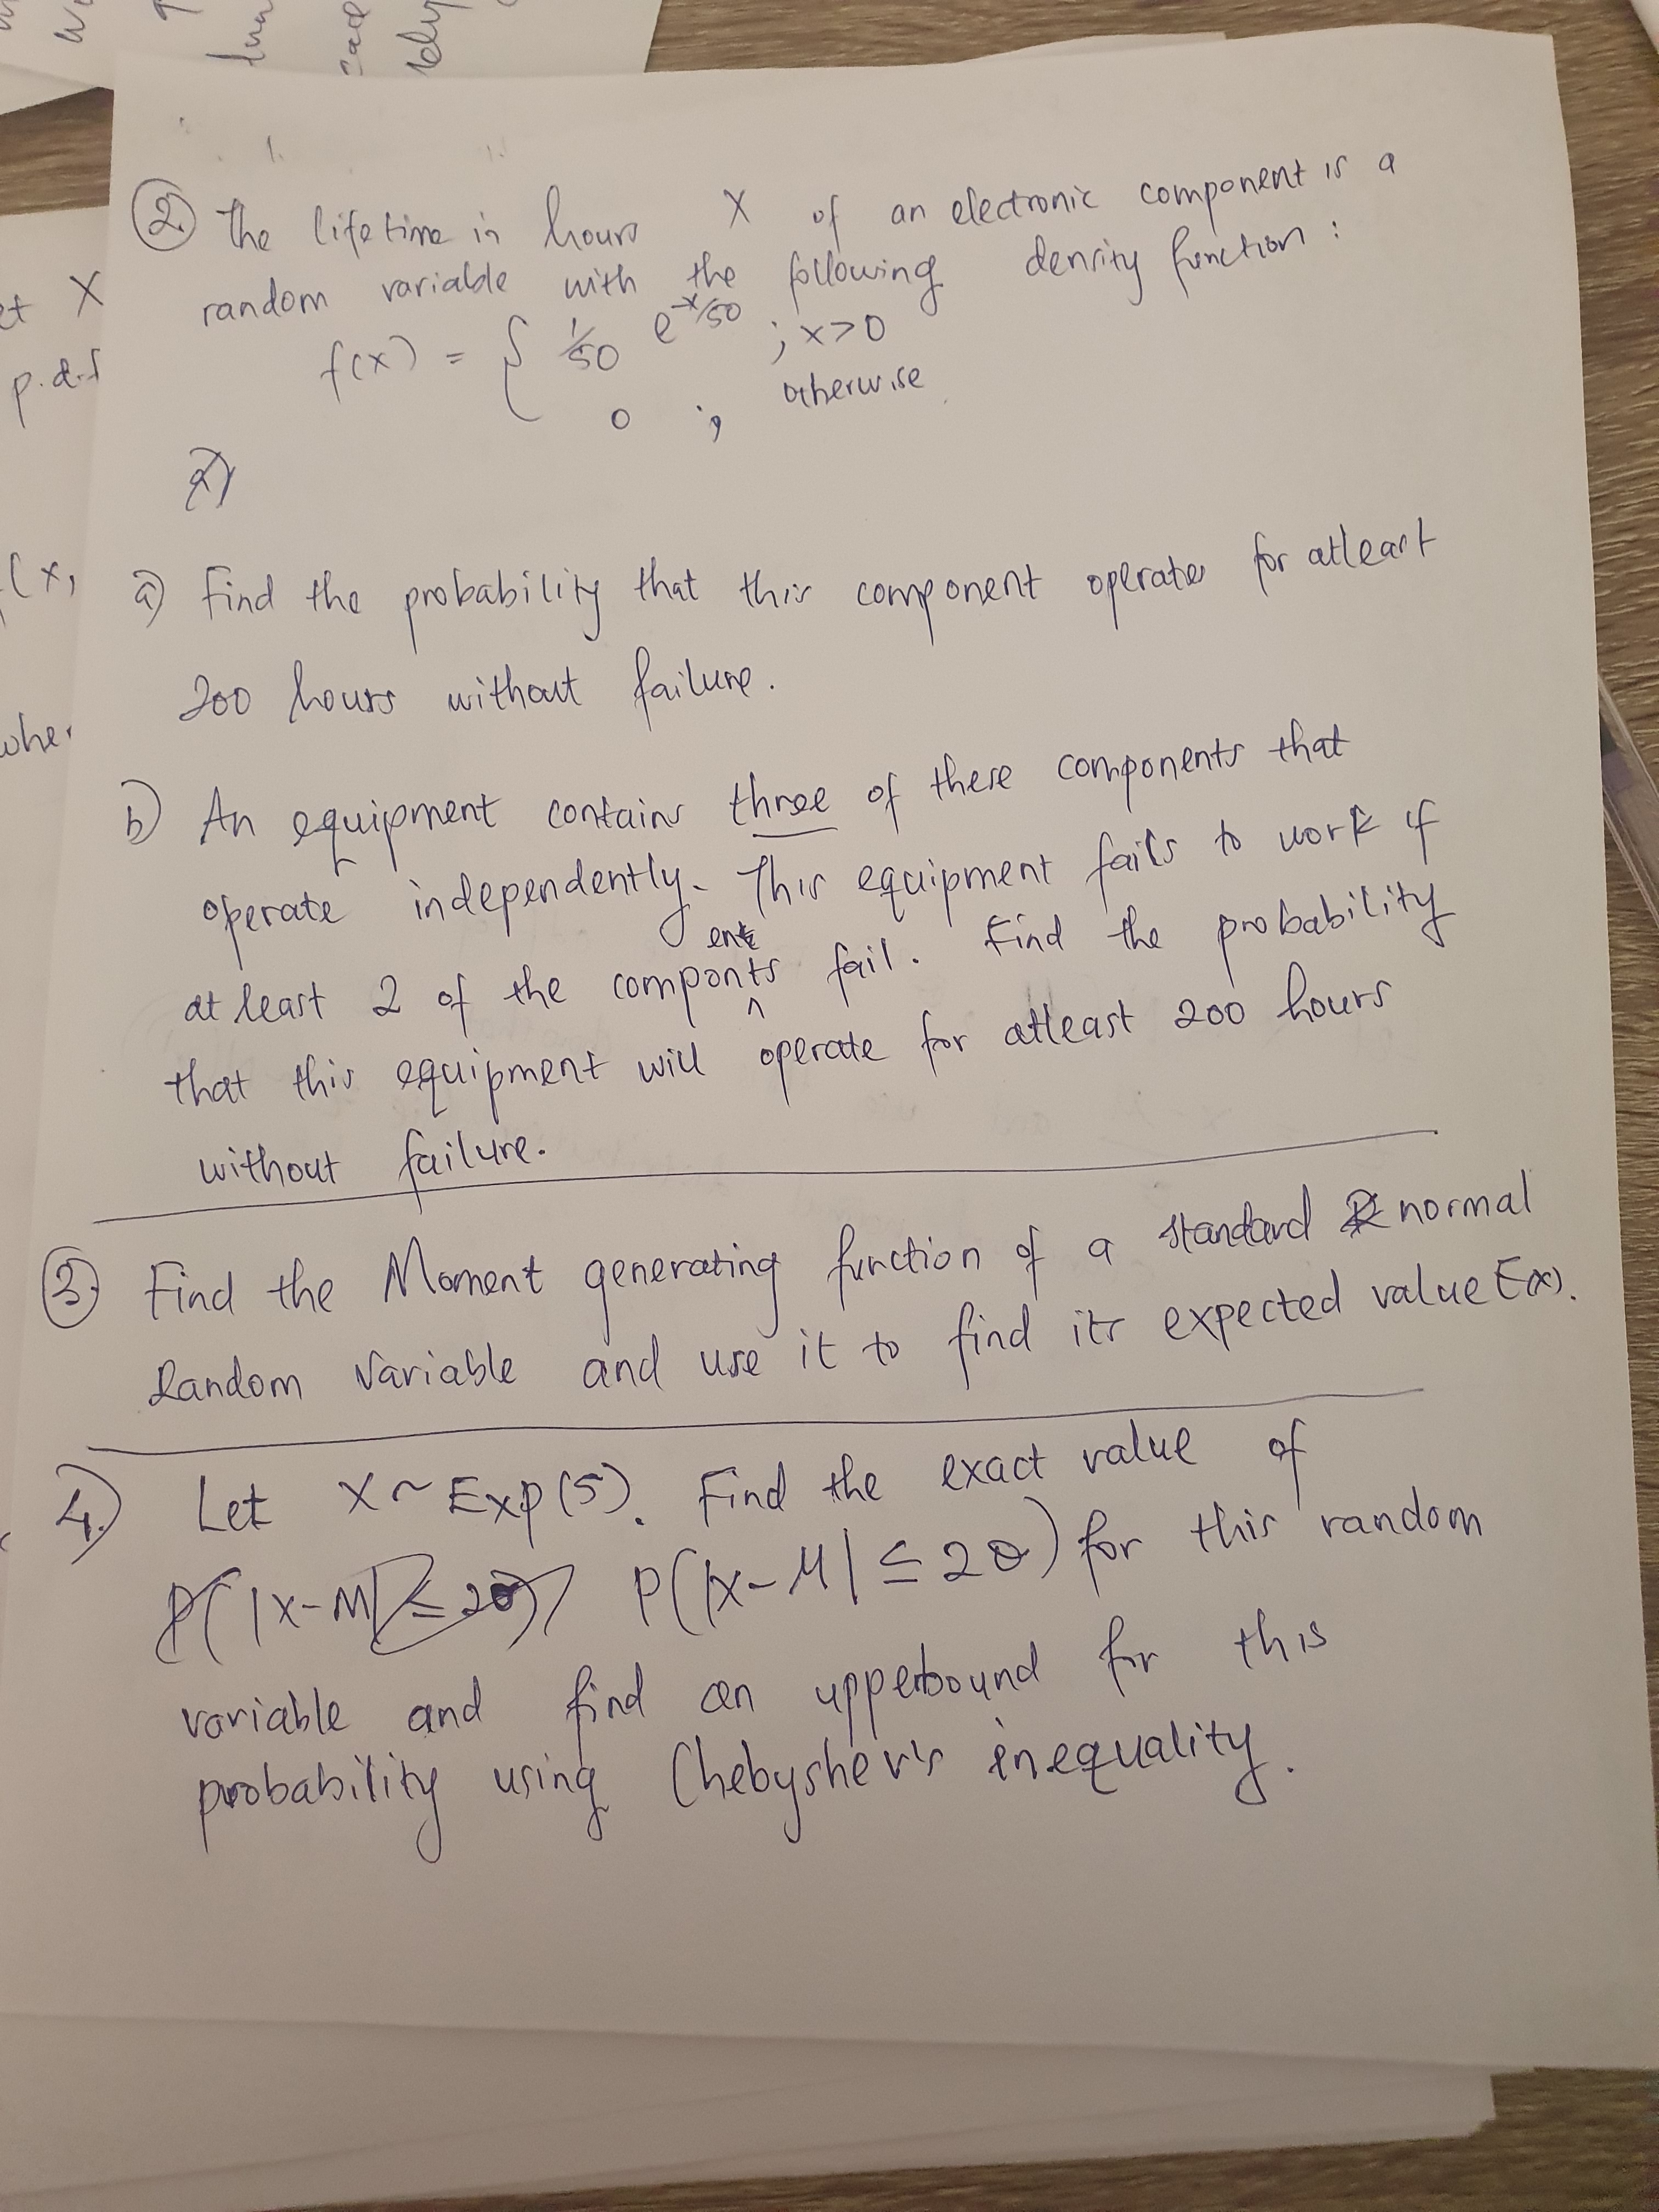 ② The lifetime in hours X of an electronic component is a
random variable with the following density function:
f(x) = { 1/50 e^-x/50 ; x>0
0 ; otherwise.
a) Find the probability that this component operates for atleast
200 hours without failure.
b) An equipment contains three of these components that
operate independently. This equipment fails to work if
at least 2 of the components fail. Find the probability
that this equipment will operate for atleast 200 hours
without failure.
③ Find the Moment generating function of a standard normal
Random Variable and use it to find its expected value E(x).
4.) Let X ~ Exp(5). Find the exact value of
P(|X-M| ≤ 2σ) P(|X-M| ≤ 2σ) for this random
variable and find an upperbound for this
probability using Chebyshev's inequality.
et X
p.d.f
(x,
wher